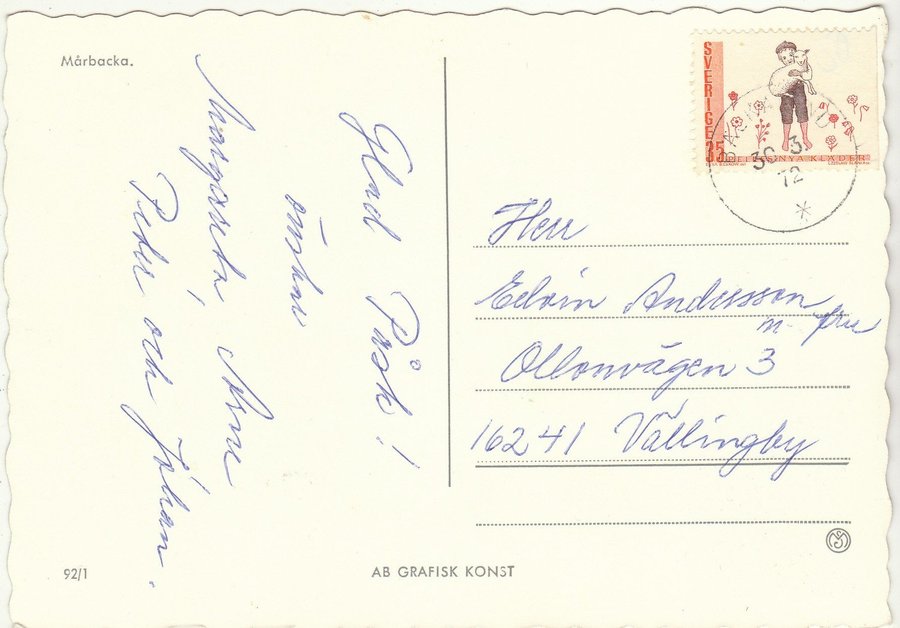 Mårbacka.
Glad Påsk!
önskar
Margareta, Arne
Peder och Johan.
SVERIGE 35
PELLES NYA KLÄDER
30 3
72
Herr
Edvin Andersson
m fru
Ollonvägen 3
16241 Vällingby
92/1
AB GRAFISK KONST